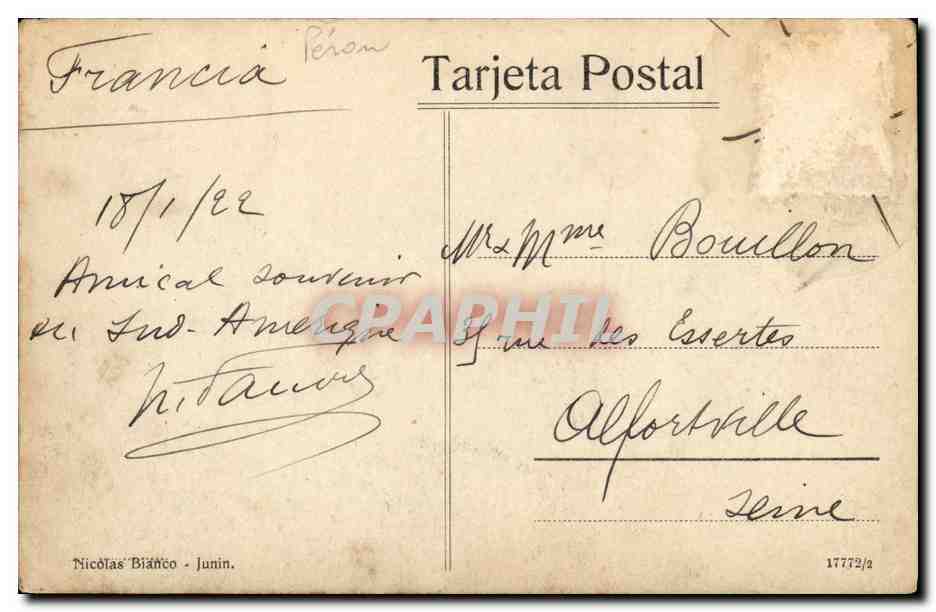 Francia
Pérou
Tarjeta Postal
18/1/22
Amical souvenir
du Sud-Amérique
Mr & Mme Bouillon
35 rue des Essertes
Alfortville
Seine
CPAPHIL
Nicolas Bianco - Junin.
17772/2